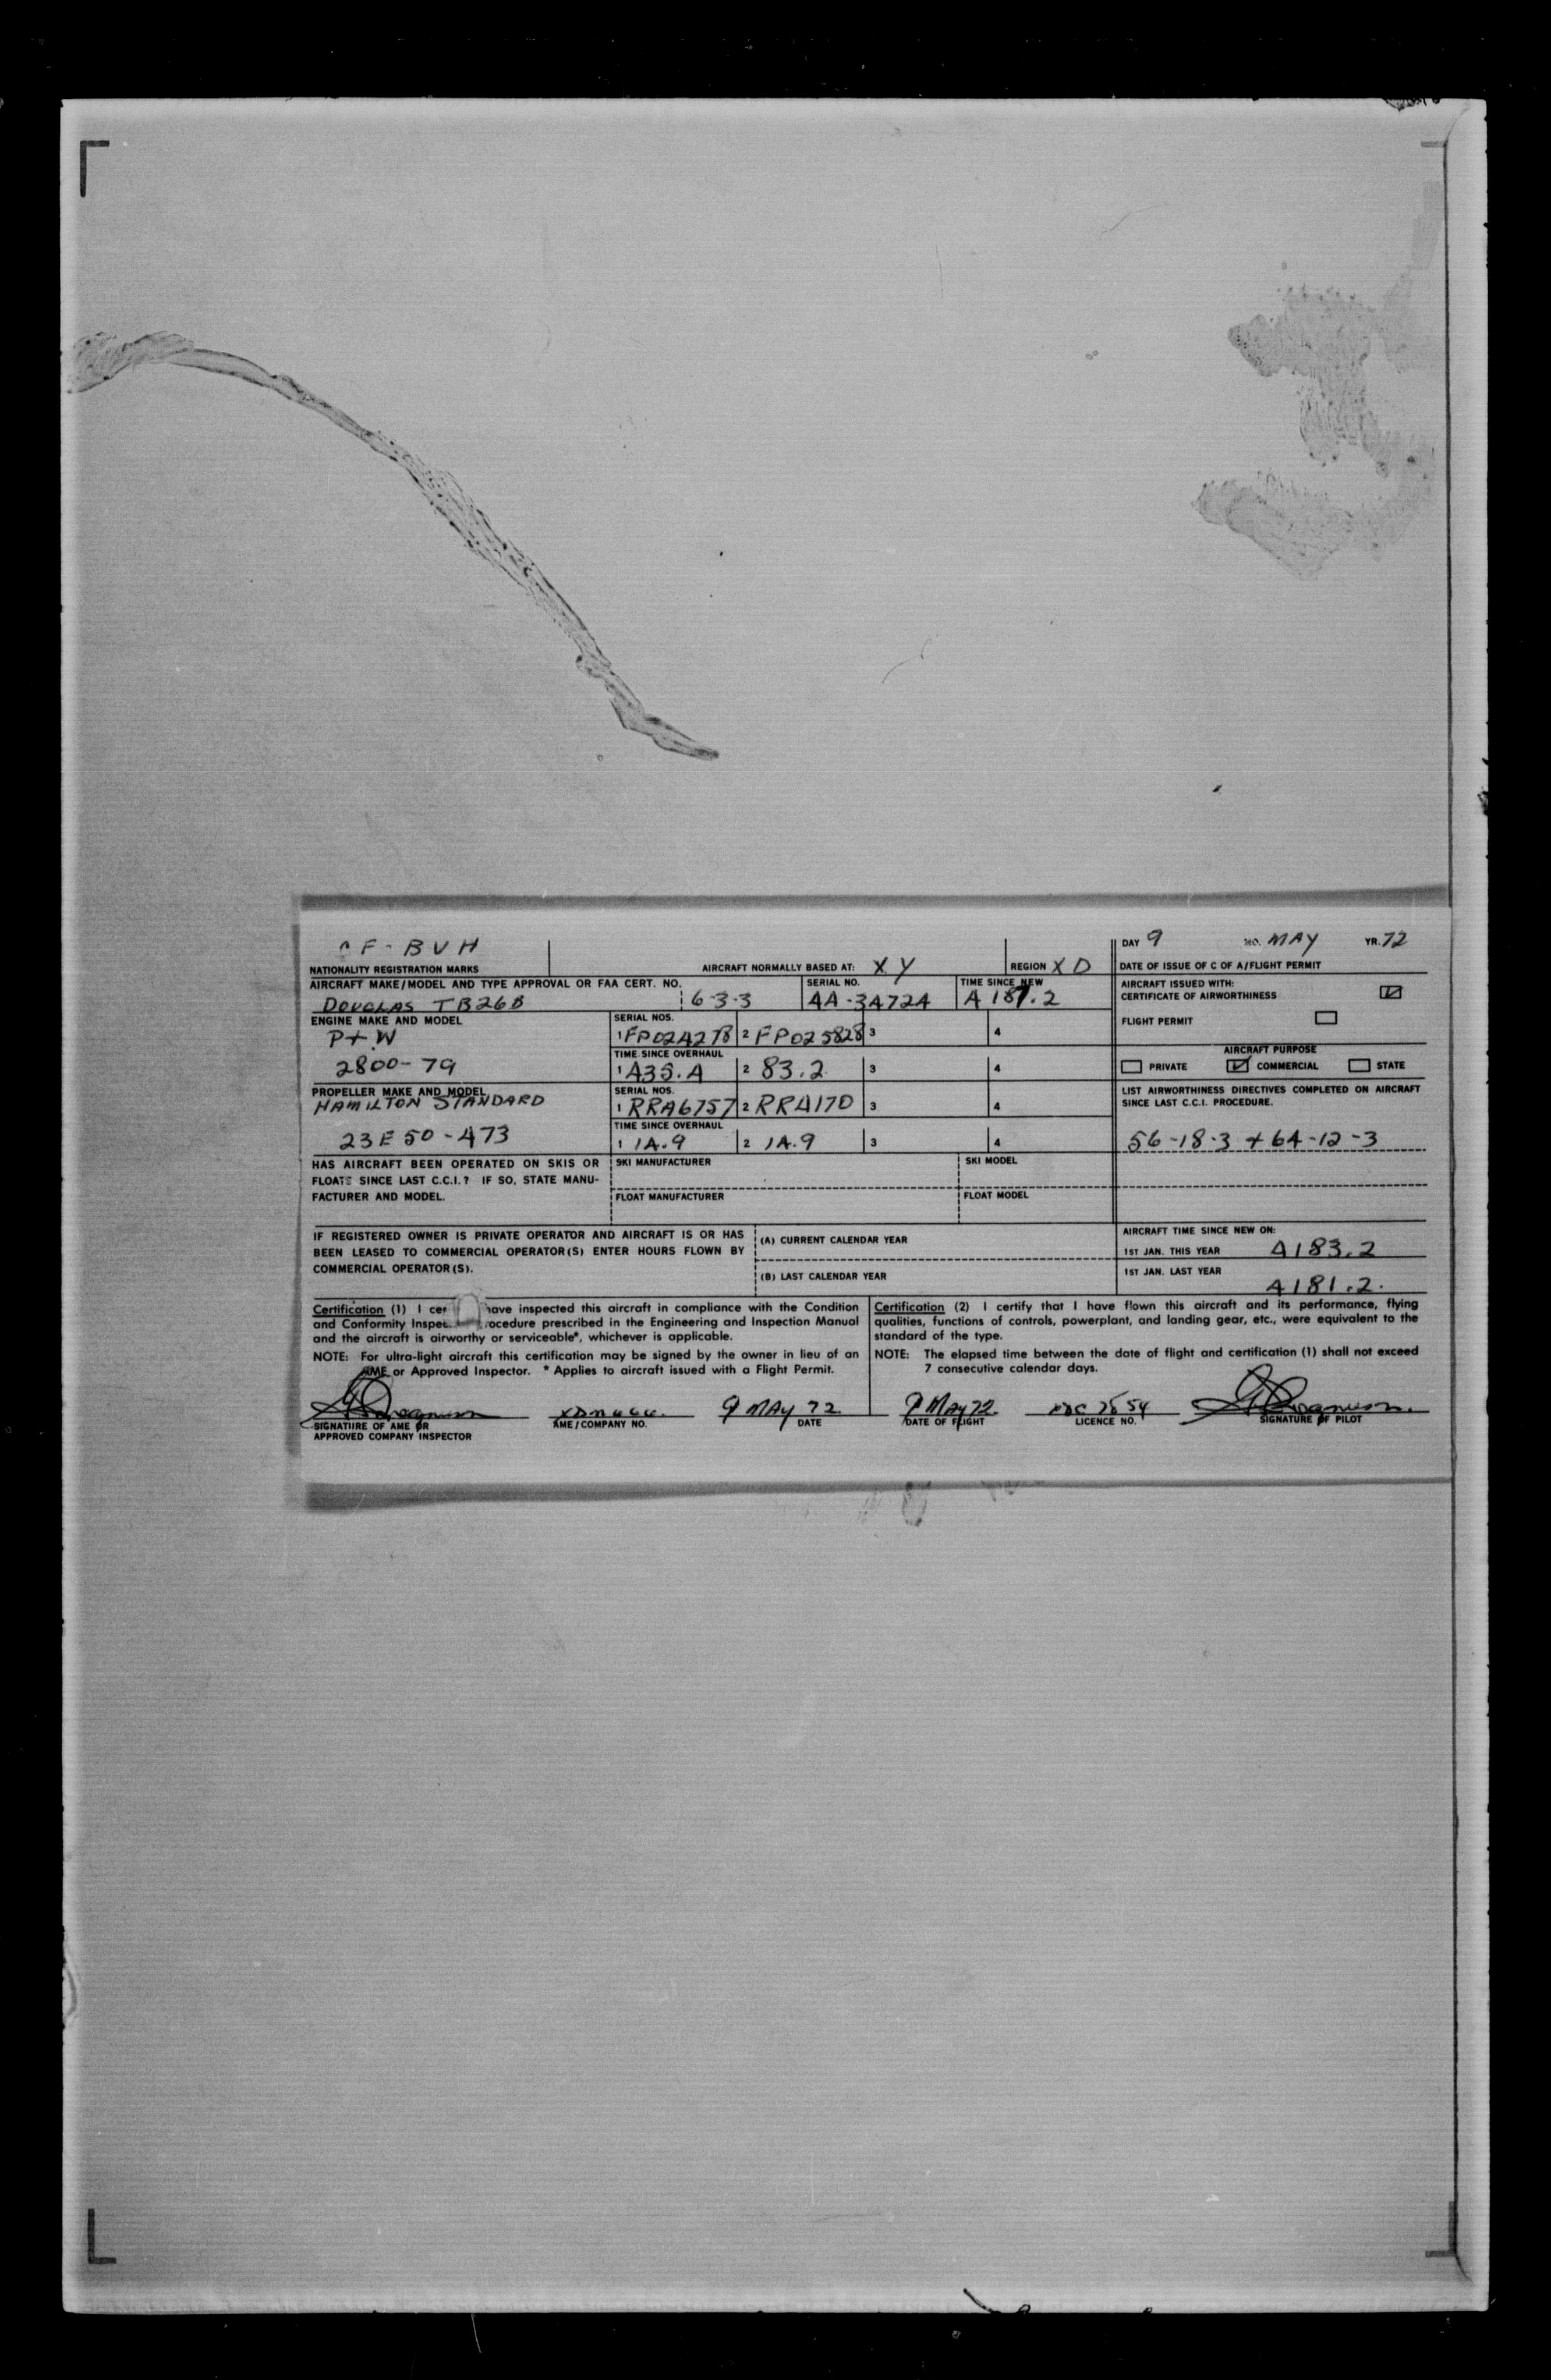 CF-BVH
NATIONALITY REGISTRATION MARKS
AIRCRAFT NORMALLY BASED AT: XY
REGION XD
DAY 9 MO. MAY YR. 72
DATE OF ISSUE OF C OF A/FLIGHT PERMIT
AIRCRAFT MAKE/MODEL AND TYPE APPROVAL OR FAA CERT. NO.
DOUGLAS TB26B 6-3-3
SERIAL NO.
44-34724
TIME SINCE NEW
4187.2
AIRCRAFT ISSUED WITH:
CERTIFICATE OF AIRWORTHINESS
FLIGHT PERMIT
ENGINE MAKE AND MODEL
P+W
2800-79
SERIAL NOS.
1 FP024278 2 FP025828 3 4
TIME SINCE OVERHAUL
1 435.4 2 83.2 3 4
AIRCRAFT PURPOSE
PRIVATE COMMERCIAL STATE
PROPELLER MAKE AND MODEL
HAMILTON STANDARD
23E50-473
SERIAL NOS.
1 RRA6757 2 RR4170 3 4
TIME SINCE OVERHAUL
1 14.9 2 14.9 3 4
LIST AIRWORTHINESS DIRECTIVES COMPLETED ON AIRCRAFT
SINCE LAST C.C.I. PROCEDURE.
56-18-3 + 64-12-3
HAS AIRCRAFT BEEN OPERATED ON SKIS OR
FLOATS SINCE LAST C.C.I.? IF SO, STATE MANU-
FACTURER AND MODEL.
SKI MANUFACTURER
SKI MODEL
FLOAT MANUFACTURER
FLOAT MODEL
IF REGISTERED OWNER IS PRIVATE OPERATOR AND AIRCRAFT IS OR HAS
BEEN LEASED TO COMMERCIAL OPERATOR(S) ENTER HOURS FLOWN BY
COMMERCIAL OPERATOR(S).
(A) CURRENT CALENDAR YEAR
(B) LAST CALENDAR YEAR
AIRCRAFT TIME SINCE NEW ON:
1ST JAN. THIS YEAR 4183.2
1ST JAN. LAST YEAR
4181.2
Certification (1) I cer have inspected this aircraft in compliance with the Condition
and Conformity Inspec rocedure prescribed in the Engineering and Inspection Manual
and the aircraft is airworthy or serviceable*, whichever is applicable.
NOTE: For ultra-light aircraft this certification may be signed by the owner in lieu of an
AME or Approved Inspector. * Applies to aircraft issued with a Flight Permit.
Certification (2) I certify that I have flown this aircraft and its performance, flying
qualities, functions of controls, powerplant, and landing gear, etc., were equivalent to the
standard of the type.
NOTE: The elapsed time between the date of flight and certification (1) shall not exceed
7 consecutive calendar days.
9 MAY 72
9 May 72
SIGNATURE OF AME OR
APPROVED COMPANY INSPECTOR
AME/COMPANY NO.
DATE
DATE OF FLIGHT
LICENCE NO.
SIGNATURE OF PILOT